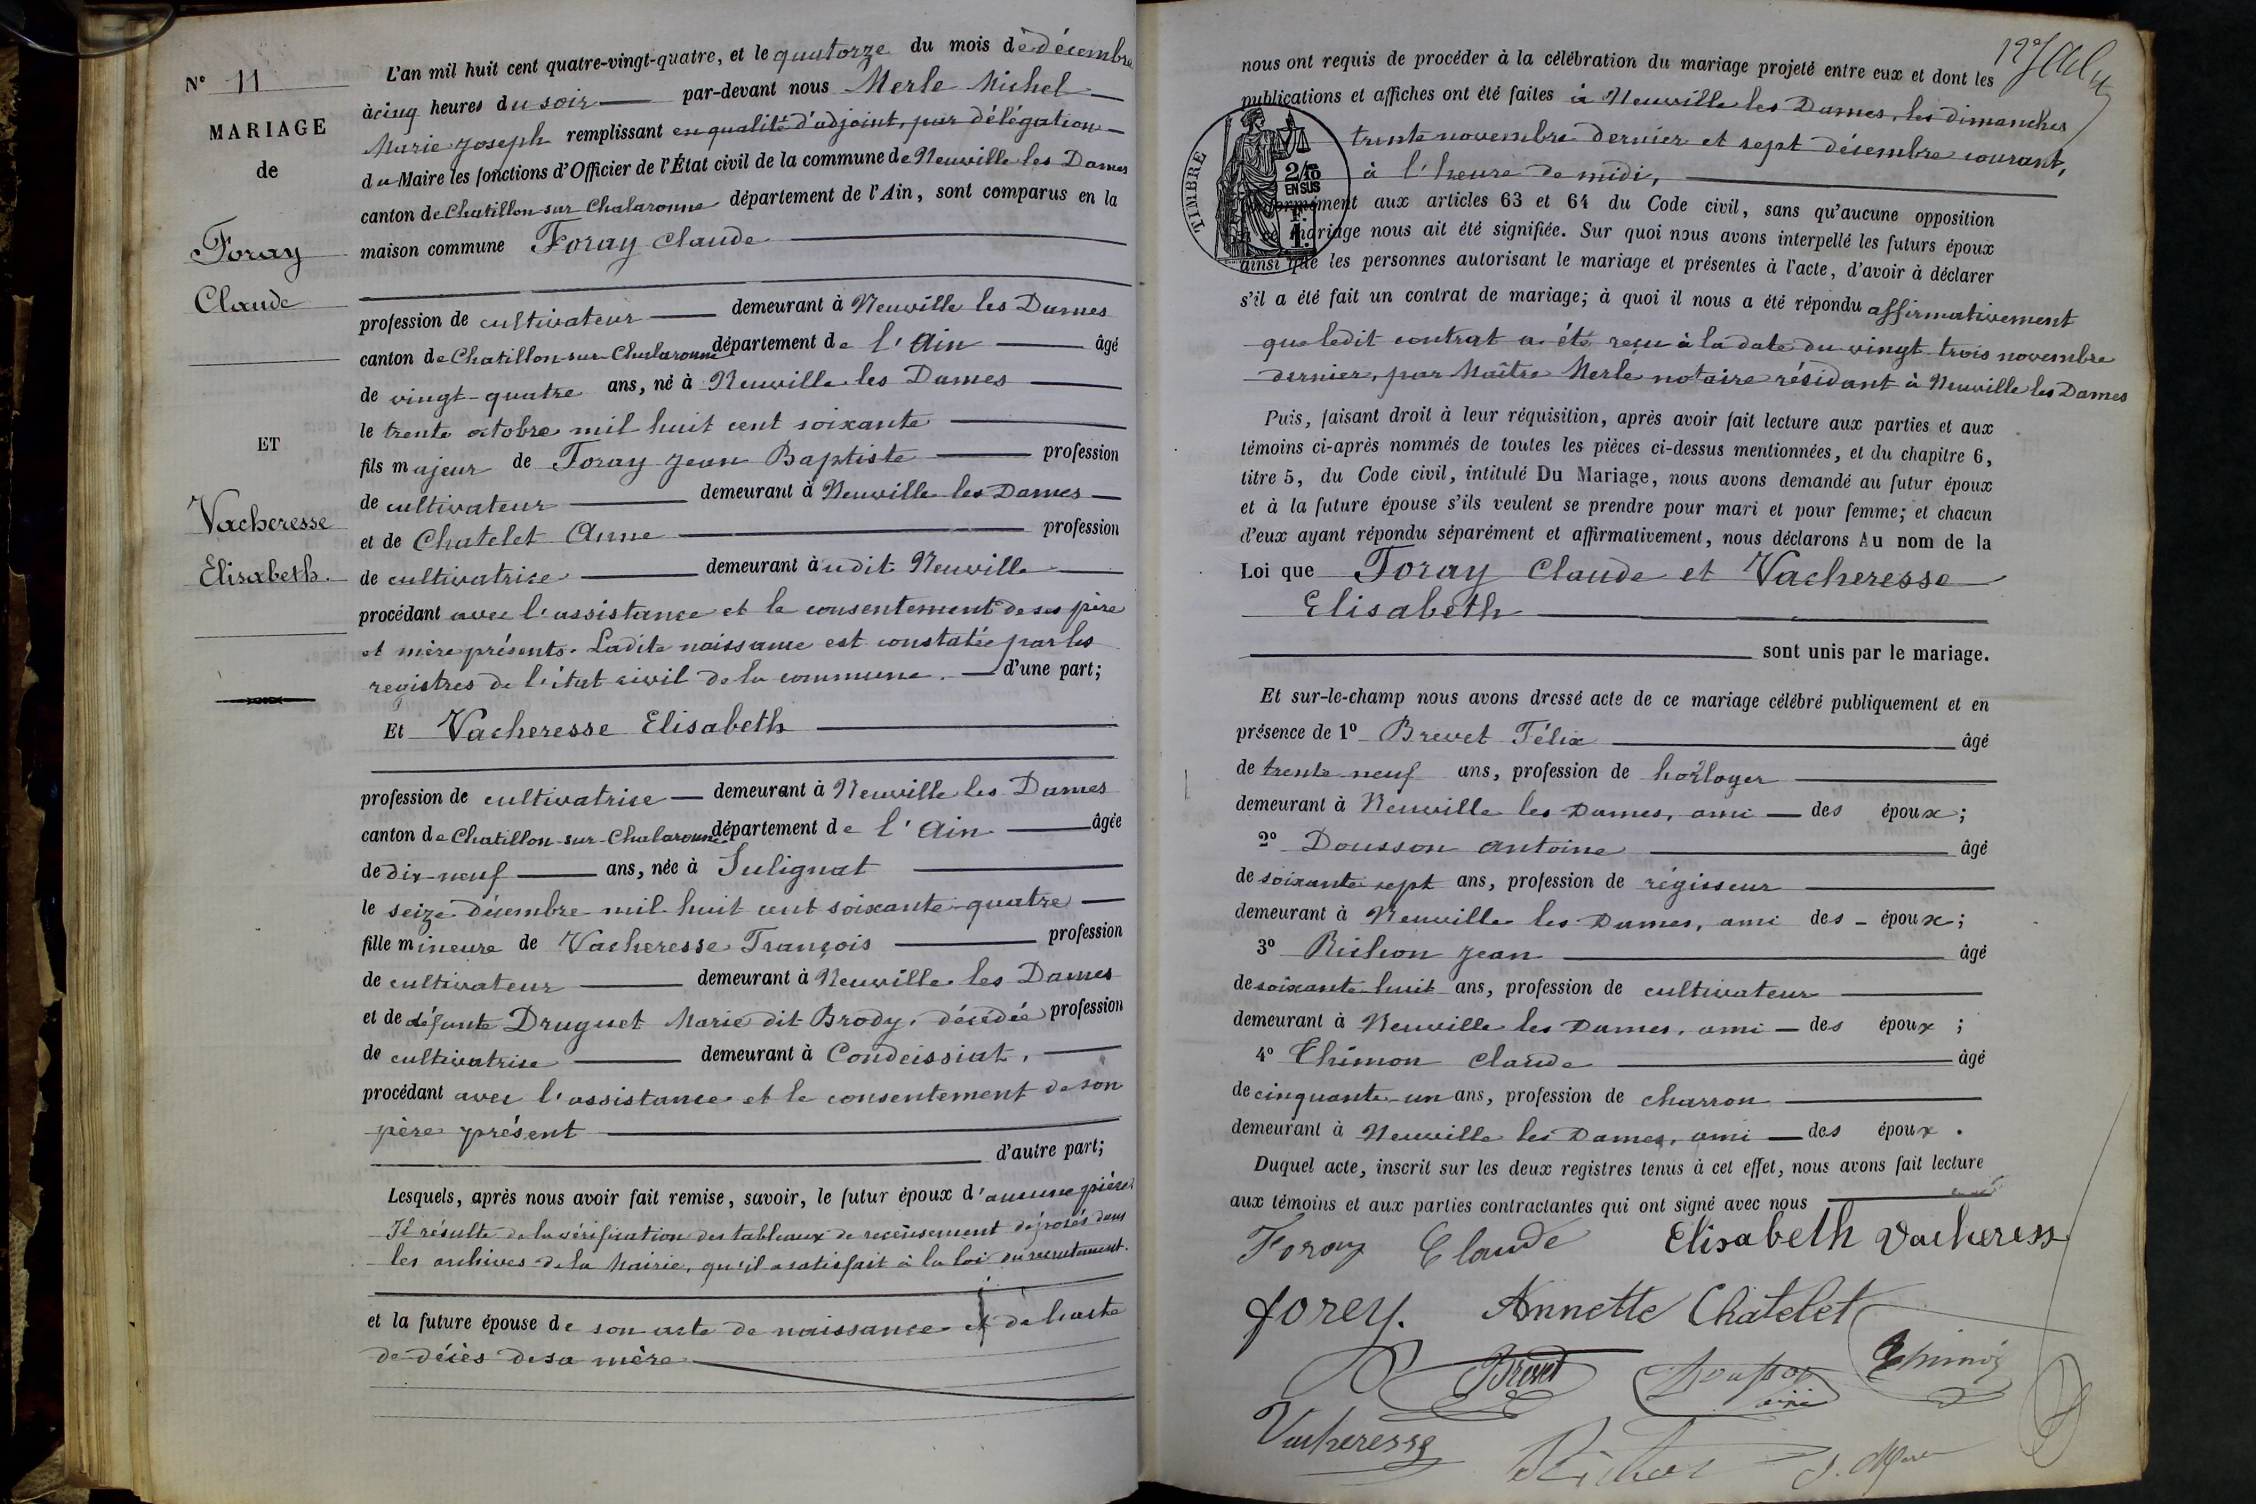 N° 11
MARIAGE
de
Foray
Claude
ET
Vacheresse
Elisabeth.
L'an mil huit cent quatre-vingt-quatre, et le quatorze du mois de décembre
à cinq heures du soir par-devant nous Merle Michel
Marie Joseph remplissant en qualité d'adjoint, par délégation
du Maire les fonctions d'Officier de l'État civil de la commune de Neuville les Dames
canton de Chatillon sur Chalaronne département de l'Ain, sont comparus en la
maison commune Foray Claude
profession de cultivateur demeurant à Neuville les Dames
canton de Chatillon-sur-Chalaronne département de l'Ain âgé
de vingt-quatre ans, né à Neuville les Dames
le trente octobre mil huit cent soixante
fils majeur de Foray Jean Baptiste profession
de cultivateur demeurant à Neuville les Dames
et de Chatelet Anne profession
de cultivatrice demeurant audit Neuville
procédant avec l'assistance et le consentement de ses père
et mère présents. Ladite naissance est constatée par les
registres de l'état civil de la commune. d'une part;
Et Vacheresse Elisabeth
profession de cultivatrice demeurant à Neuville les Dames
canton de Chatillon-sur-Chalaronne département de l'Ain âgée
de dix-neuf ans, née à Sulignat
le seize décembre mil huit cent soixante-quatre
fille mineure de Vacheresse François profession
de cultivateur demeurant à Neuville les Dames
et de défunte Druguet Marie dit Brody, décédée profession
de cultivatrice demeurant à Condeissiat,
procédant avec l'assistance et le consentement de son
père présent
d'autre part;
Lesquels, après nous avoir fait remise, savoir, le futur époux d'aucune pièce
Il résulte de la vérification des tableaux de recensement déposés dans
les archives de la Mairie, qu'il a satisfait à la loi du recrutement.
et la future épouse de son acte de naissance et de l'acte
de décès de sa mère
nous ont requis de procéder à la célébration du mariage projeté entre eux et dont les
publications et affiches ont été faites à Neuville les Dames, les dimanches
trente novembre dernier et sept décembre courant,
à l'heure de midi,
TIMBRE
2/10
EN SUS
conformément aux articles 63 et 64 du Code civil, sans qu'aucune opposition
à ce mariage nous ait été signifiée. Sur quoi nous avons interpellé les futurs époux
ainsi que les personnes autorisant le mariage et présentes à l'acte, d'avoir à déclarer
s'il a été fait un contrat de mariage; à quoi il nous a été répondu affirmativement
que ledit contrat a été reçu à la date du vingt trois novembre
dernier, par Maître Merle notaire résidant à Neuville les Dames
Puis, faisant droit à leur réquisition, après avoir fait lecture aux parties et aux
témoins ci-après nommés de toutes les pièces ci-dessus mentionnées, et du chapitre 6,
titre 5, du Code civil, intitulé Du Mariage, nous avons demandé au futur époux
et à la future épouse s'ils veulent se prendre pour mari et pour femme; et chacun
d'eux ayant répondu séparément et affirmativement, nous déclarons Au nom de la
Loi que Foray Claude et Vacheresse
Elisabeth
sont unis par le mariage.
Et sur-le-champ nous avons dressé acte de ce mariage célébré publiquement et en
présence de 1° Brevet Félix âgé
de trente neuf ans, profession de horloger
demeurant à Neuville les Dames, ami des époux;
2° Dousson Antoine âgé
de soixante sept ans, profession de régisseur
demeurant à Neuville les Dames, ami des époux;
3° Richon Jean âgé
de soixante huit ans, profession de cultivateur
demeurant à Neuville les Dames, ami des époux;
4° Thimon Claude âgé
de cinquante-un ans, profession de charron
demeurant à Neuville les Dames, ami des époux.
Duquel acte, inscrit sur les deux registres tenus à cet effet, nous avons fait lecture
aux témoins et aux parties contractantes qui ont signé avec nous
Foray Claude Elisabeth Vacheress
forey. Annette Chatelet
Brevet Dousson Thimon
Vacheresse Richon